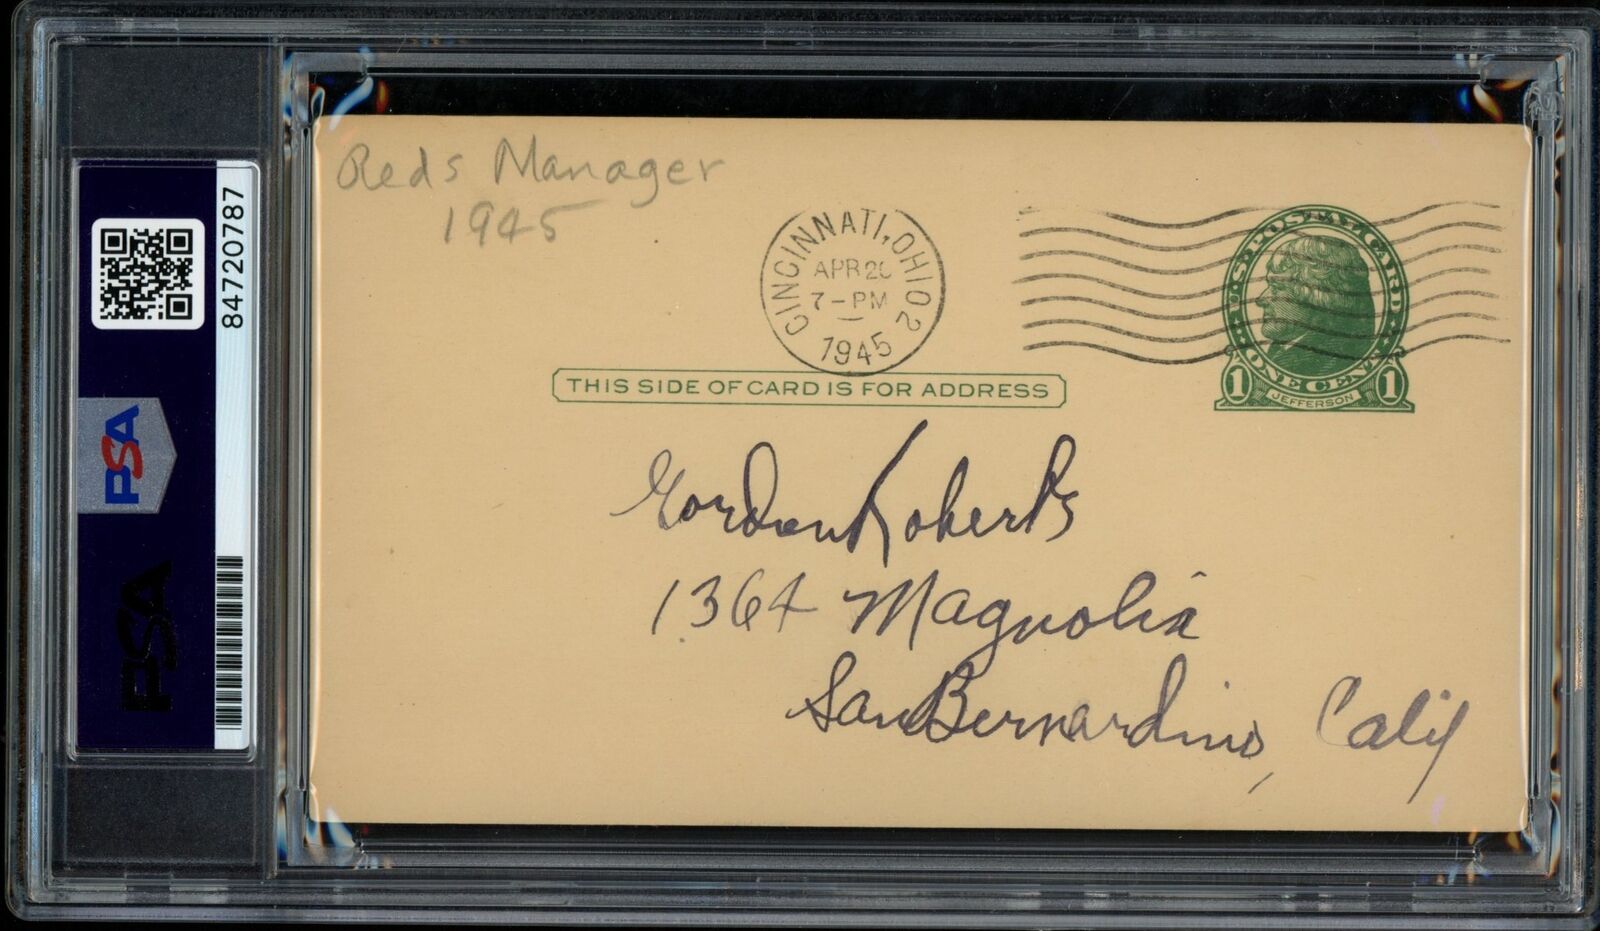 Reds Manager
1945
CINCINNATI, OHIO 2
APR 20
7-PM
1945
U.S. POSTAL CARD
1 ONE CENT 1
JEFFERSON
THIS SIDE OF CARD IS FOR ADDRESS
Gordon Roberts
1364 Magnolia
San Bernardino, Calif
84720787
PSA
PSA